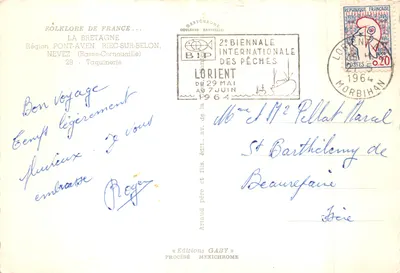 FOLKLORE DE FRANCE...
LA BRETAGNE
Région PONT-AVEN RIEC-SUR-BELON,
NEVEZ (Basse-Cornouaille)
29 -
2e BIENNALE
INTERNATIONALE
DES PÊCHES
BIP
LORIENT
DU 29 MAI
AU 7 JUIN
1964
LORIENT
1964
MORBIHAN
0,20
Bon voyage
Temps légèrement
pluvieux. Je vous
embrasse
Roger
Mme et Mr Pellat Marcel
St Barthélemy de
Beaurepaire
Isère
"Editions GABY"
PROCÉDÉ MEXICHROME